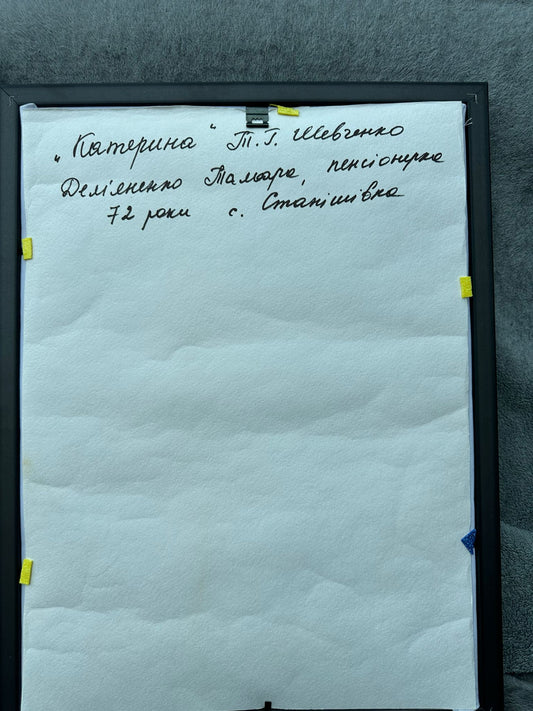 „Катерина" Т. Г. Шевченко
Дем'яненко Тамара, пенсіонерка
72 роки с. Станішівка